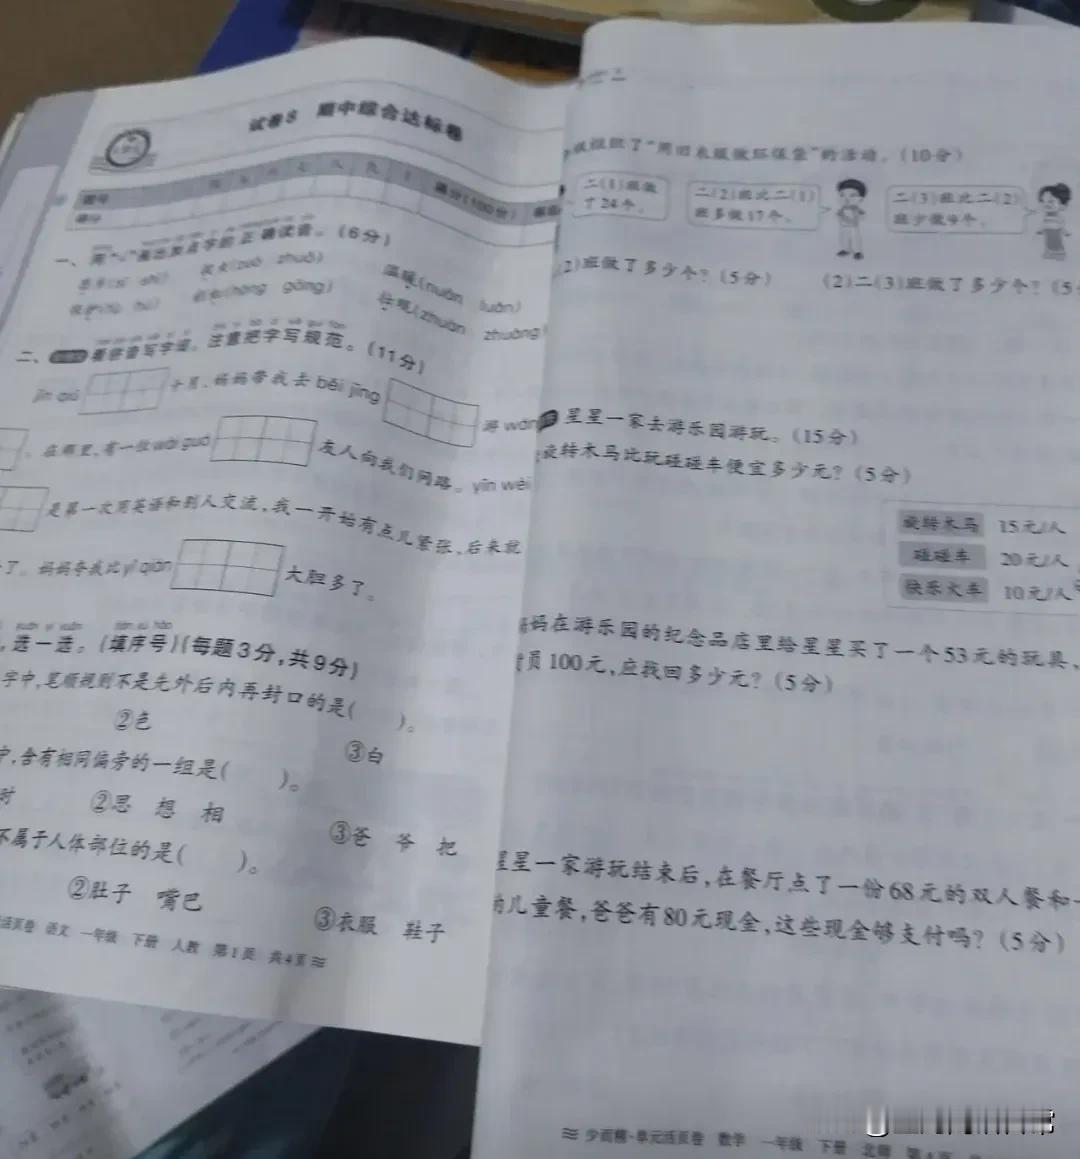 试卷8 期中综合达标卷
题号 四 五 六 七 八 九 满分(100分)
得分
一、用“√”画出加点字的正确读音。(6分)
温暖(nuǎn luǎn)
(zuò zhuō)
(hōng gōng)
往呢(zhuàn zhuàng)
二、看拼音写字词,注意把字写规范。(11分)
jīn qiū 十月,妈妈带我去 běi jīng 游 wán
。在那里,有一位 wài guó 友人向我们问路。yīn wèi
是第一次用英语和别人交流,我一开始有点儿紧张,后来就
了。妈妈夸我比 yǐ qián 大胆多了。
选一选。(填序号)(每题3分,共9分)
字中,笔顺规则不是先外后内再封口的是( )。
②色 ③白
中,含有相同偏旁的一组是( )。
时 ②思 想 相 ③爸 爷 把
不属于人体部位的是( )。
②肚子 嘴巴 ③衣服 鞋子
活页卷 语文 一年级 下册 人教 第1页 共4页
级组织了“用旧衣服做环保袋”的活动。(10分)
二(1)班做了24个。
二(2)班比二(1)班多做17个。
二(3)班比二(2)班少做9个。
2)班做了多少个?(5分) (2)二(3)班做了多少个?(5
星星一家去游乐园游玩。(15分)
旋转木马比玩碰碰车便宜多少元?(5分)
旋转木马 15元/人
碰碰车 20元/人
快乐火车 10元/人
妈妈在游乐园的纪念品店里给星星买了一个53元的玩具,
员100元,应找回多少元?(5分)
星星一家游玩结束后,在餐厅点了一份68元的双人餐和一
的儿童餐,爸爸有80元现金,这些现金够支付吗?(5分)
少而精·单元活页卷 数学 一年级 下册 北师 第4页